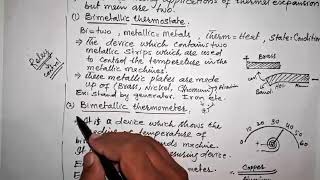 applications of thermal expansion
but main are two.
(1) Bimetallic thermostate:
Bi = two, metallic = metals, Therm = Heat, State = Condition
→ The device which contains two
metallic strips which are used
to control the temperature in the
metallic machines.
→ These metallic plates are made
up of (Brass, Nickel,
Ex: stand by generator, Iron etc.
(2) Bimetallic thermometer
It is a device which shows the
of temperature of
machine.
device.
Relay
control
Brass
Copper
0
10
20
30
40
60